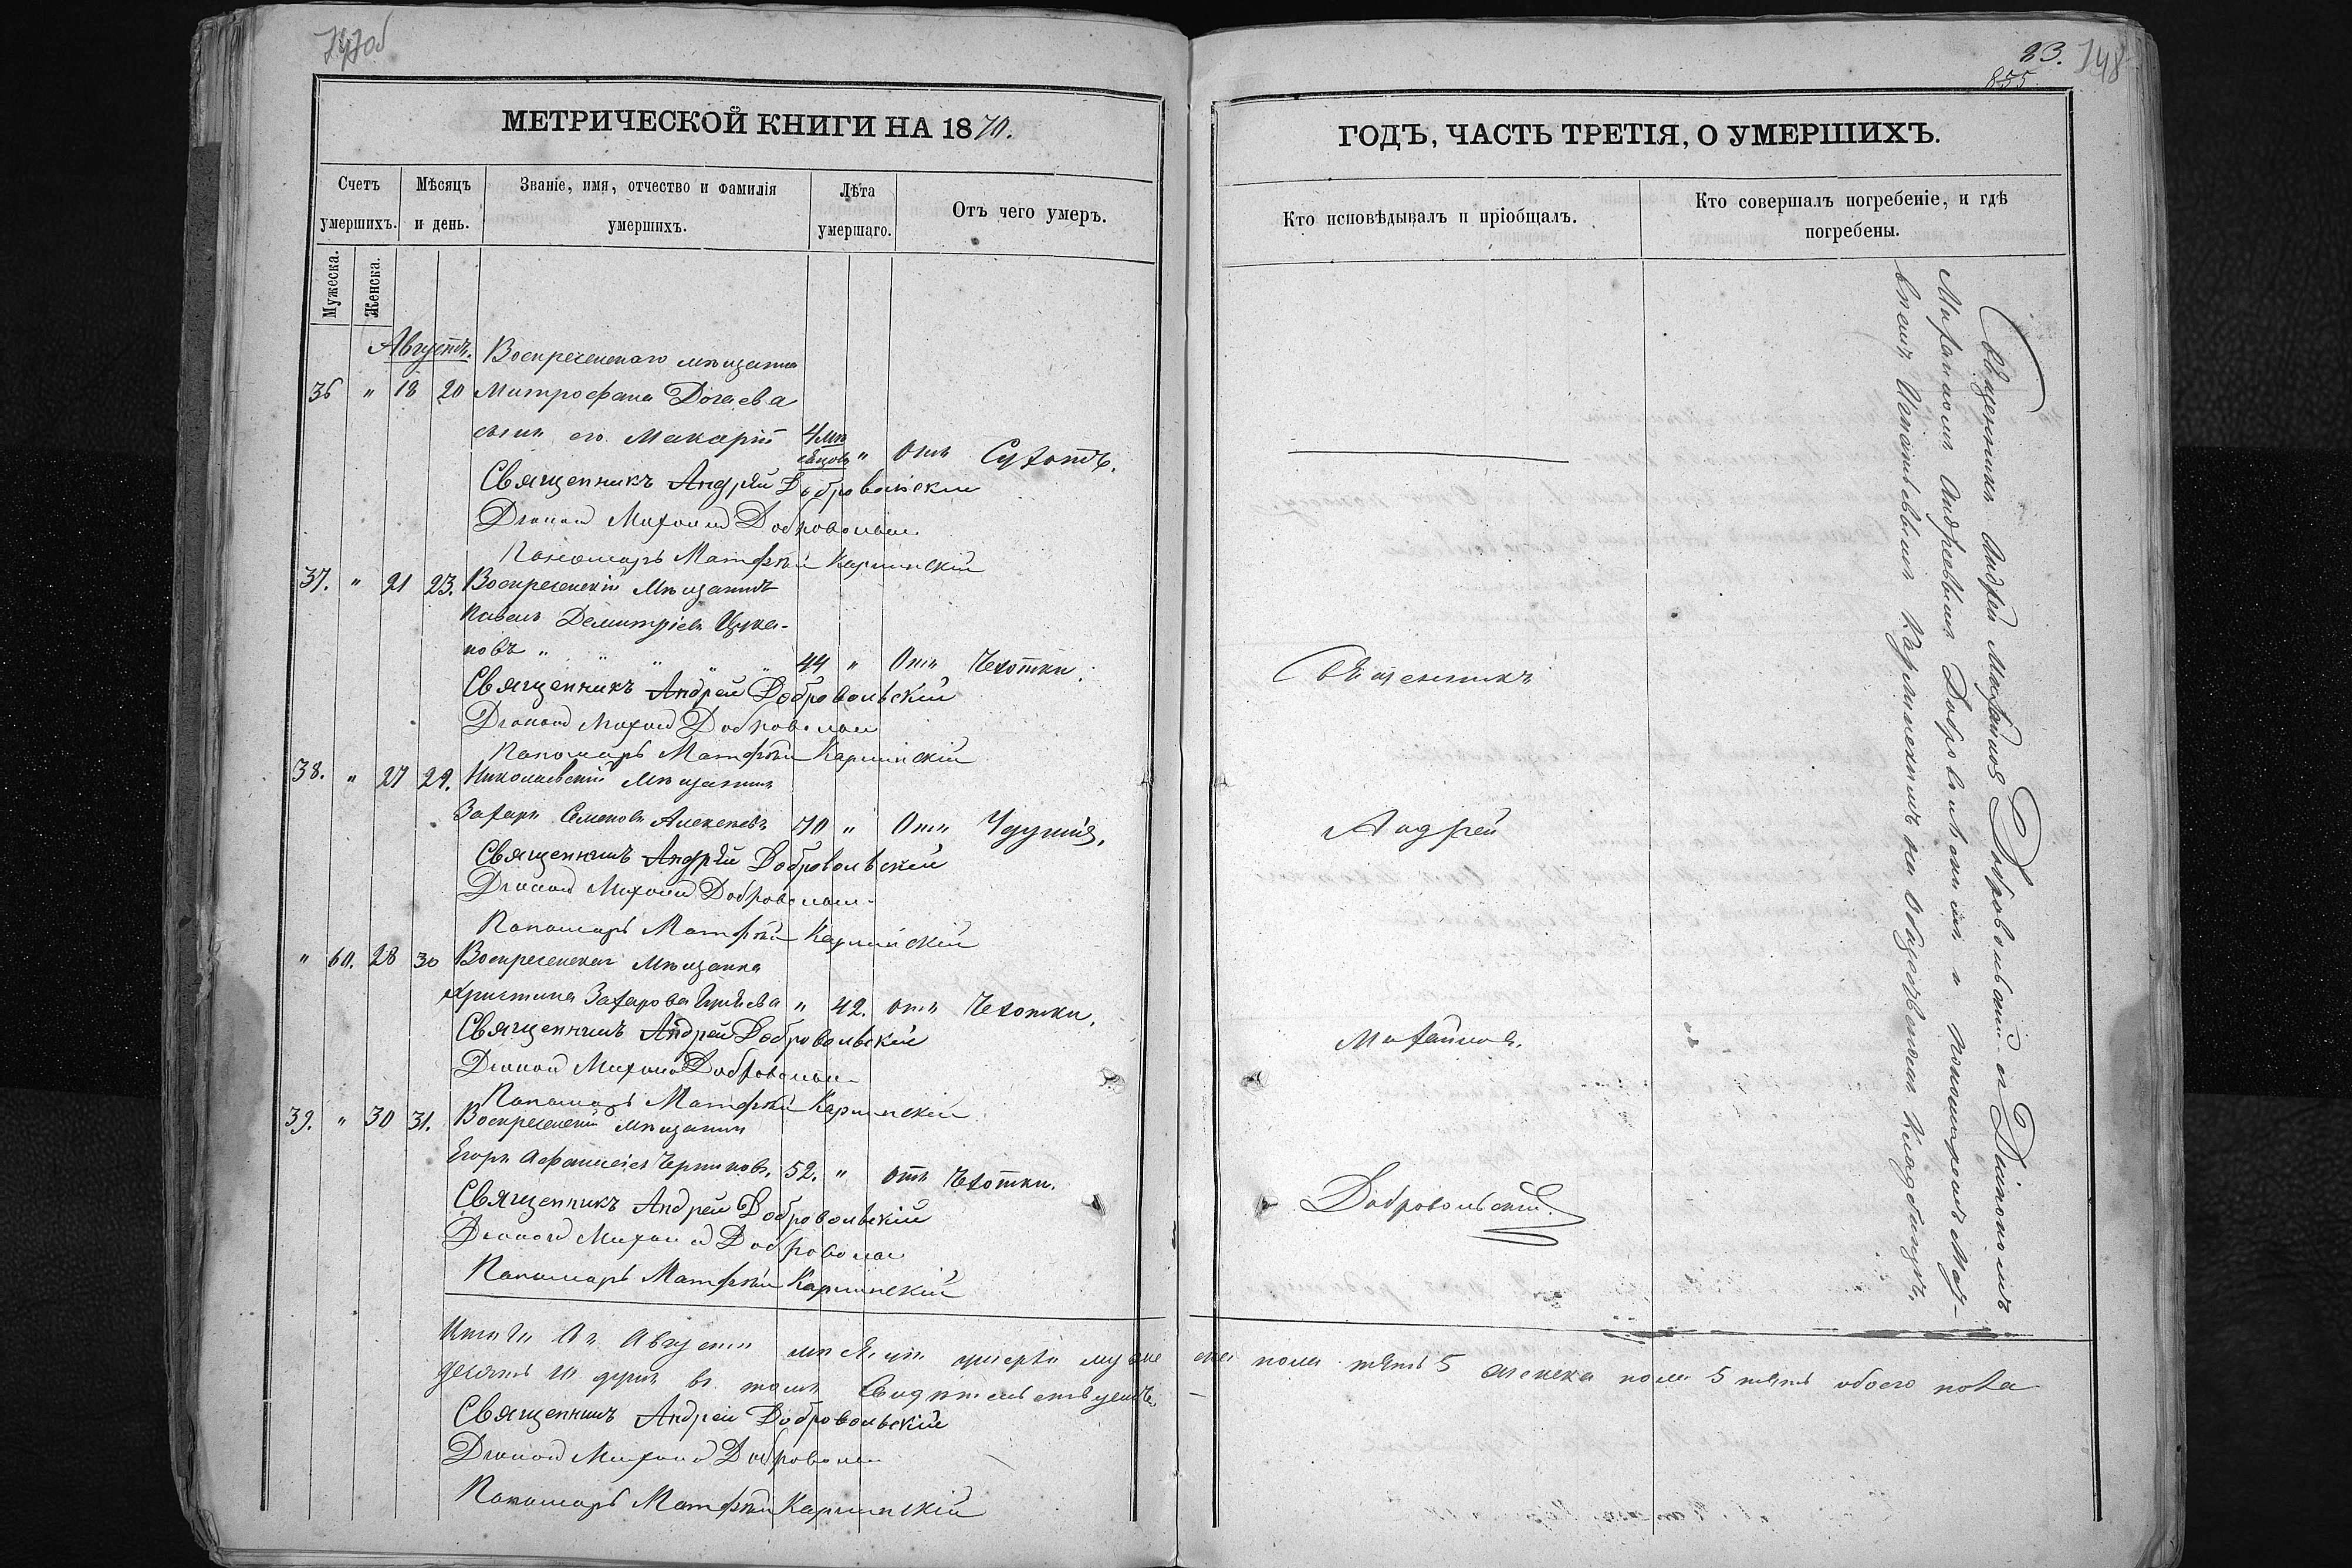 747об
МЕТРИЧЕСКОЙ КНИГИ НА 1870.
Счетъ умершихъ.
Мѣсяцъ и день.
Званіе, имя, отчество и фамилія умершихъ.
Лѣта умершаго.
Отъ чего умеръ.
Мужеска.
Женска.
Августъ.
Воскресенскаго мѣщанина
36 " 18 20 Митрофана Догаева
сынъ его Макарій 4 мѣсяцовъ " отъ Сухотъ.
Священникъ Андрей Добровольскій
Діаконъ Михаилъ Добровольск
Пономарь Матфѣй Карминскій
37. " 21 23. Воскресенскій Мѣщанинъ
Павелъ Демитріевъ Цука-
новъ " " " " " 44 " Отъ Чехотки.
Священникъ Андрей Добровольскій
Діаконъ Михаилъ Добровольск
Пономарь Матфѣй Карминскій
38. " 27 29. Николаевскій Мѣщанинъ
Захаръ Семеновъ Алексѣевъ 70 " Отъ Удушія.
Священникъ Андрей Добровольскій
Діаконъ Михаилъ Добровольск
Пономарь Матфѣй Карминскій
" 60. 28 30 Воскресенская Мѣщанка
Христина Захарова " 42. отъ Чехотки.
Священникъ Андрей Добровольскій
Діаконъ Михаилъ Добровольск
Пономарь Матфѣй Карминскій
39. " 30 31. Воскресенскій мѣщанинъ
Егоръ Афанасіевъ 52. " отъ Чехотки.
Священникъ Андрей Добровольскій
Діаконъ Михаилъ Добровольск
Пономарь Матфѣй Карминскій
Итого въ Августѣ мѣсяцѣ умерло мужес
десять 10 душъ въ томъ свидѣтельствуемъ.
Священникъ Андрей Добровольскій
Діаконъ Михаилъ Добровольск
Пономарь Матфѣй Карминскій
23. 748
855
ГОДЪ, ЧАСТЬ ТРЕТІЯ, О УМЕРШИХЪ.
Кто исповѣдывалъ и пріобщалъ.
Кто совершалъ погребеніе, и гдѣ погребены.
Священникъ
Андрей
Михайловъ.
Добровольскій.
Священникъ Андрей Михайловъ Добровольскій съ Діакономъ
Михаиломъ Андреевымъ Добровольскимъ и пономаремъ Матѳ-
Игнатьевымъ Карминскимъ на общественномъ кладбищѣ.
ска пола пять 5 женска пола 5 пять обоего пола